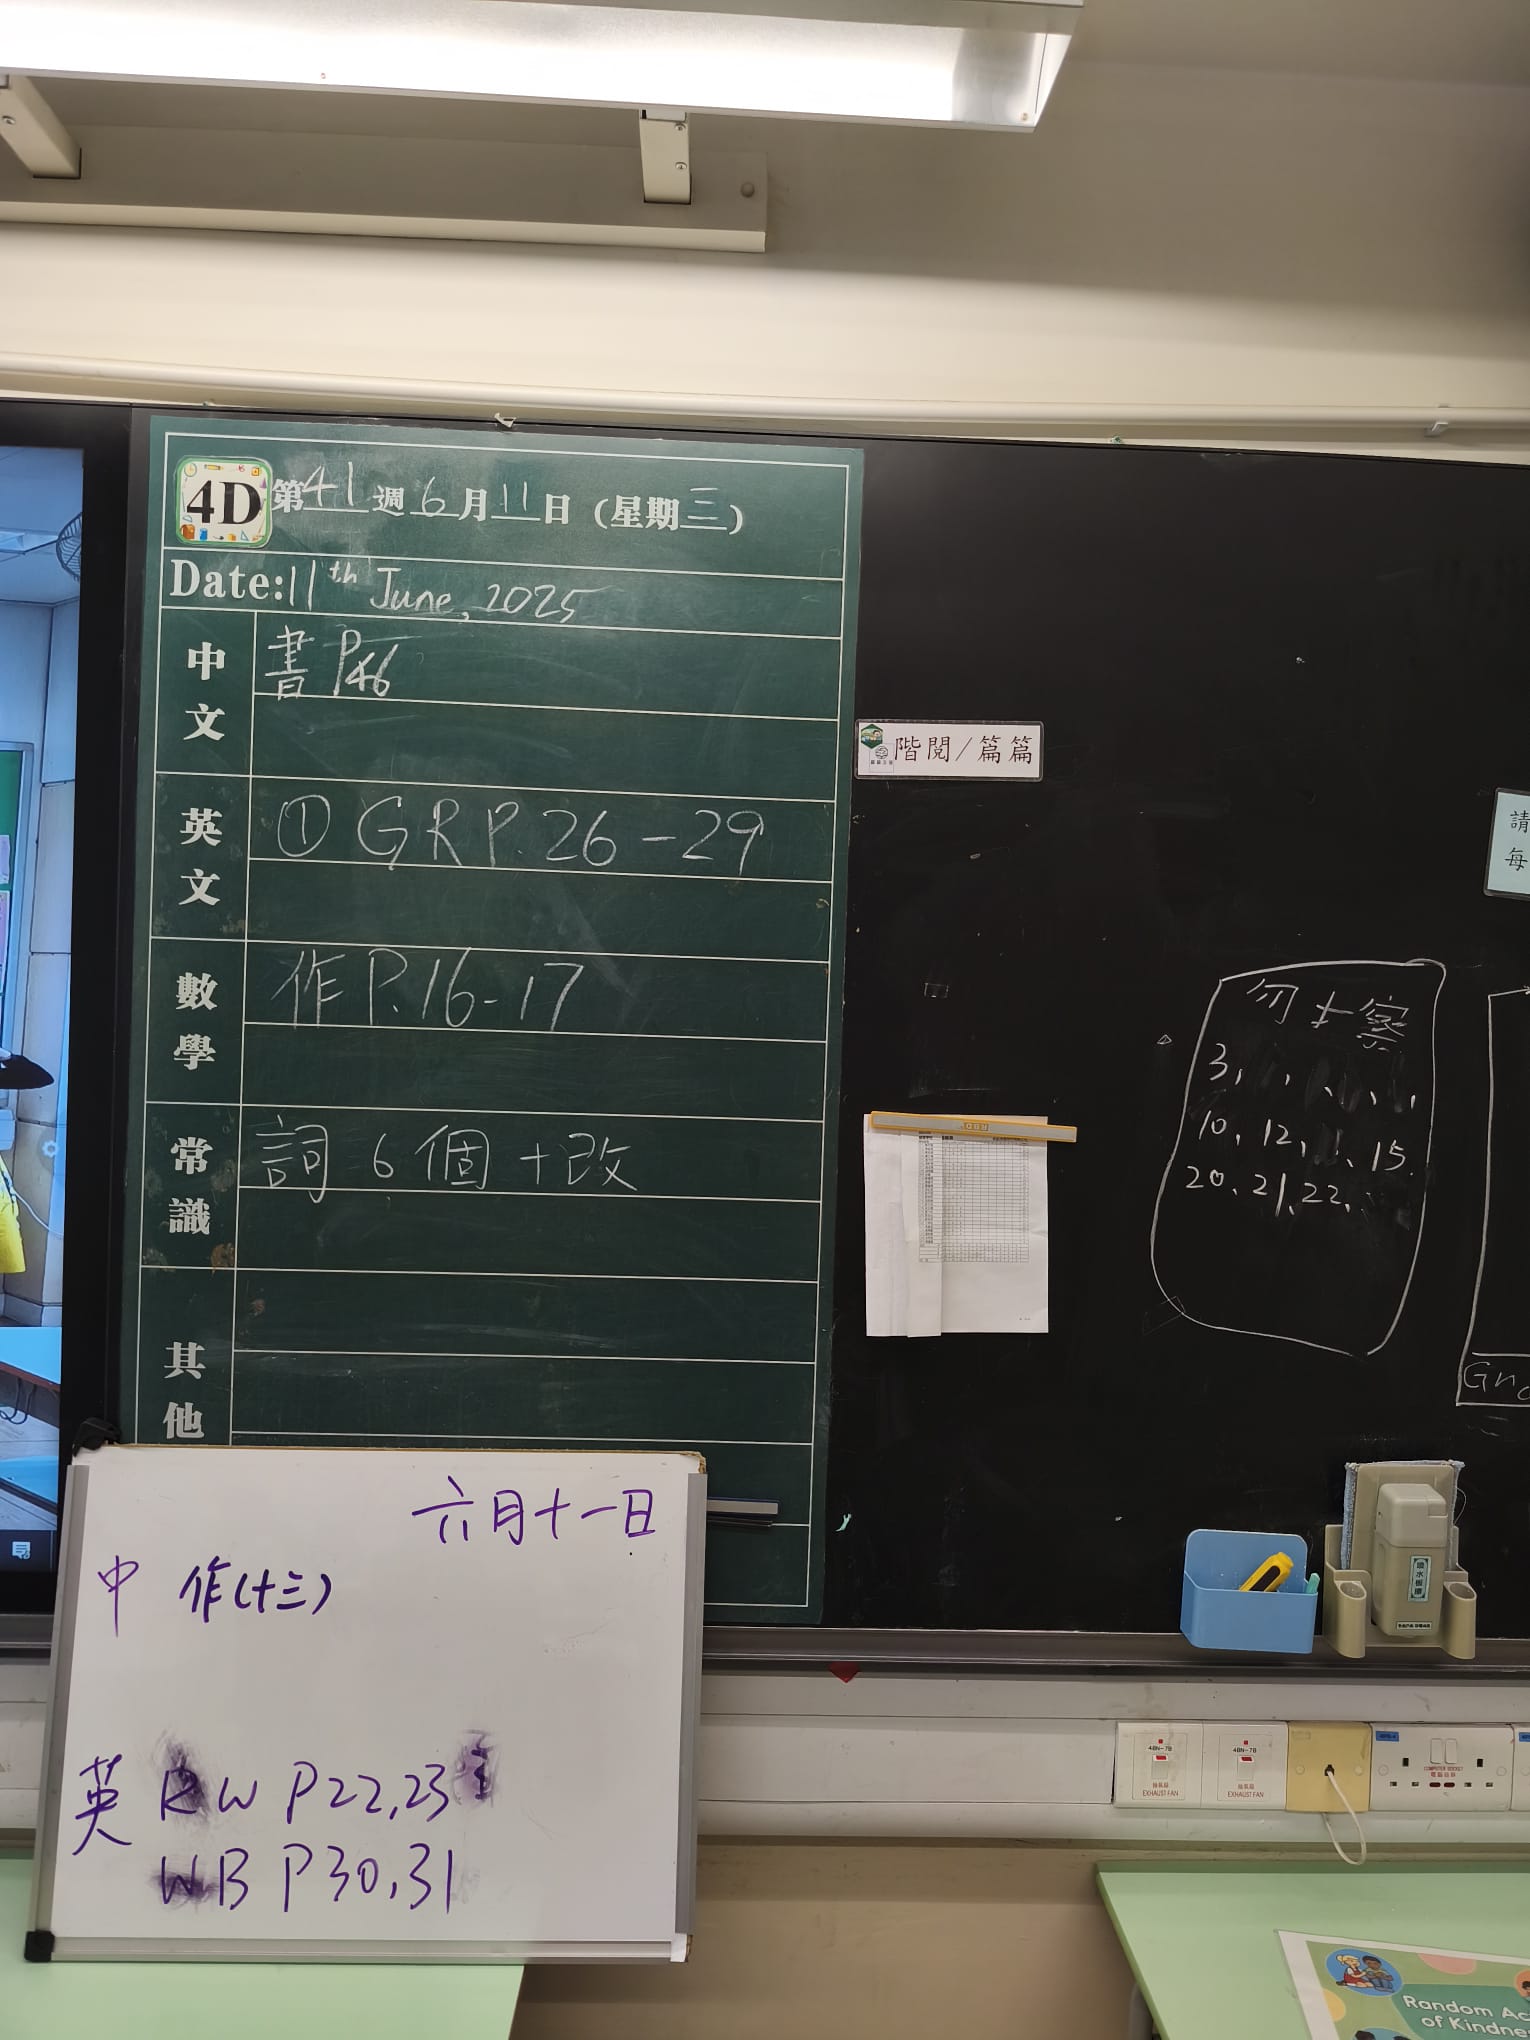 4D 第41週6月11日（星期三）
Date: 11th June, 2025
中文
書 P46
英文
① GR P.26-29
數學
作 P.16-17
常識
詞 6個+改
其他
階閱/篇篇
請
每
3、、、、、、
10、12、、、15.
20、21、22、
六月十一日
中 作(十三)
英 RW P22,23
WB P30,31
4BN-7B
抽氣扇
EXHAUST FAN
4BN-7B
抽氣扇
EXHAUST FAN
COMPUTER SOCKET
電腦插座
Random Ac
of Kindne